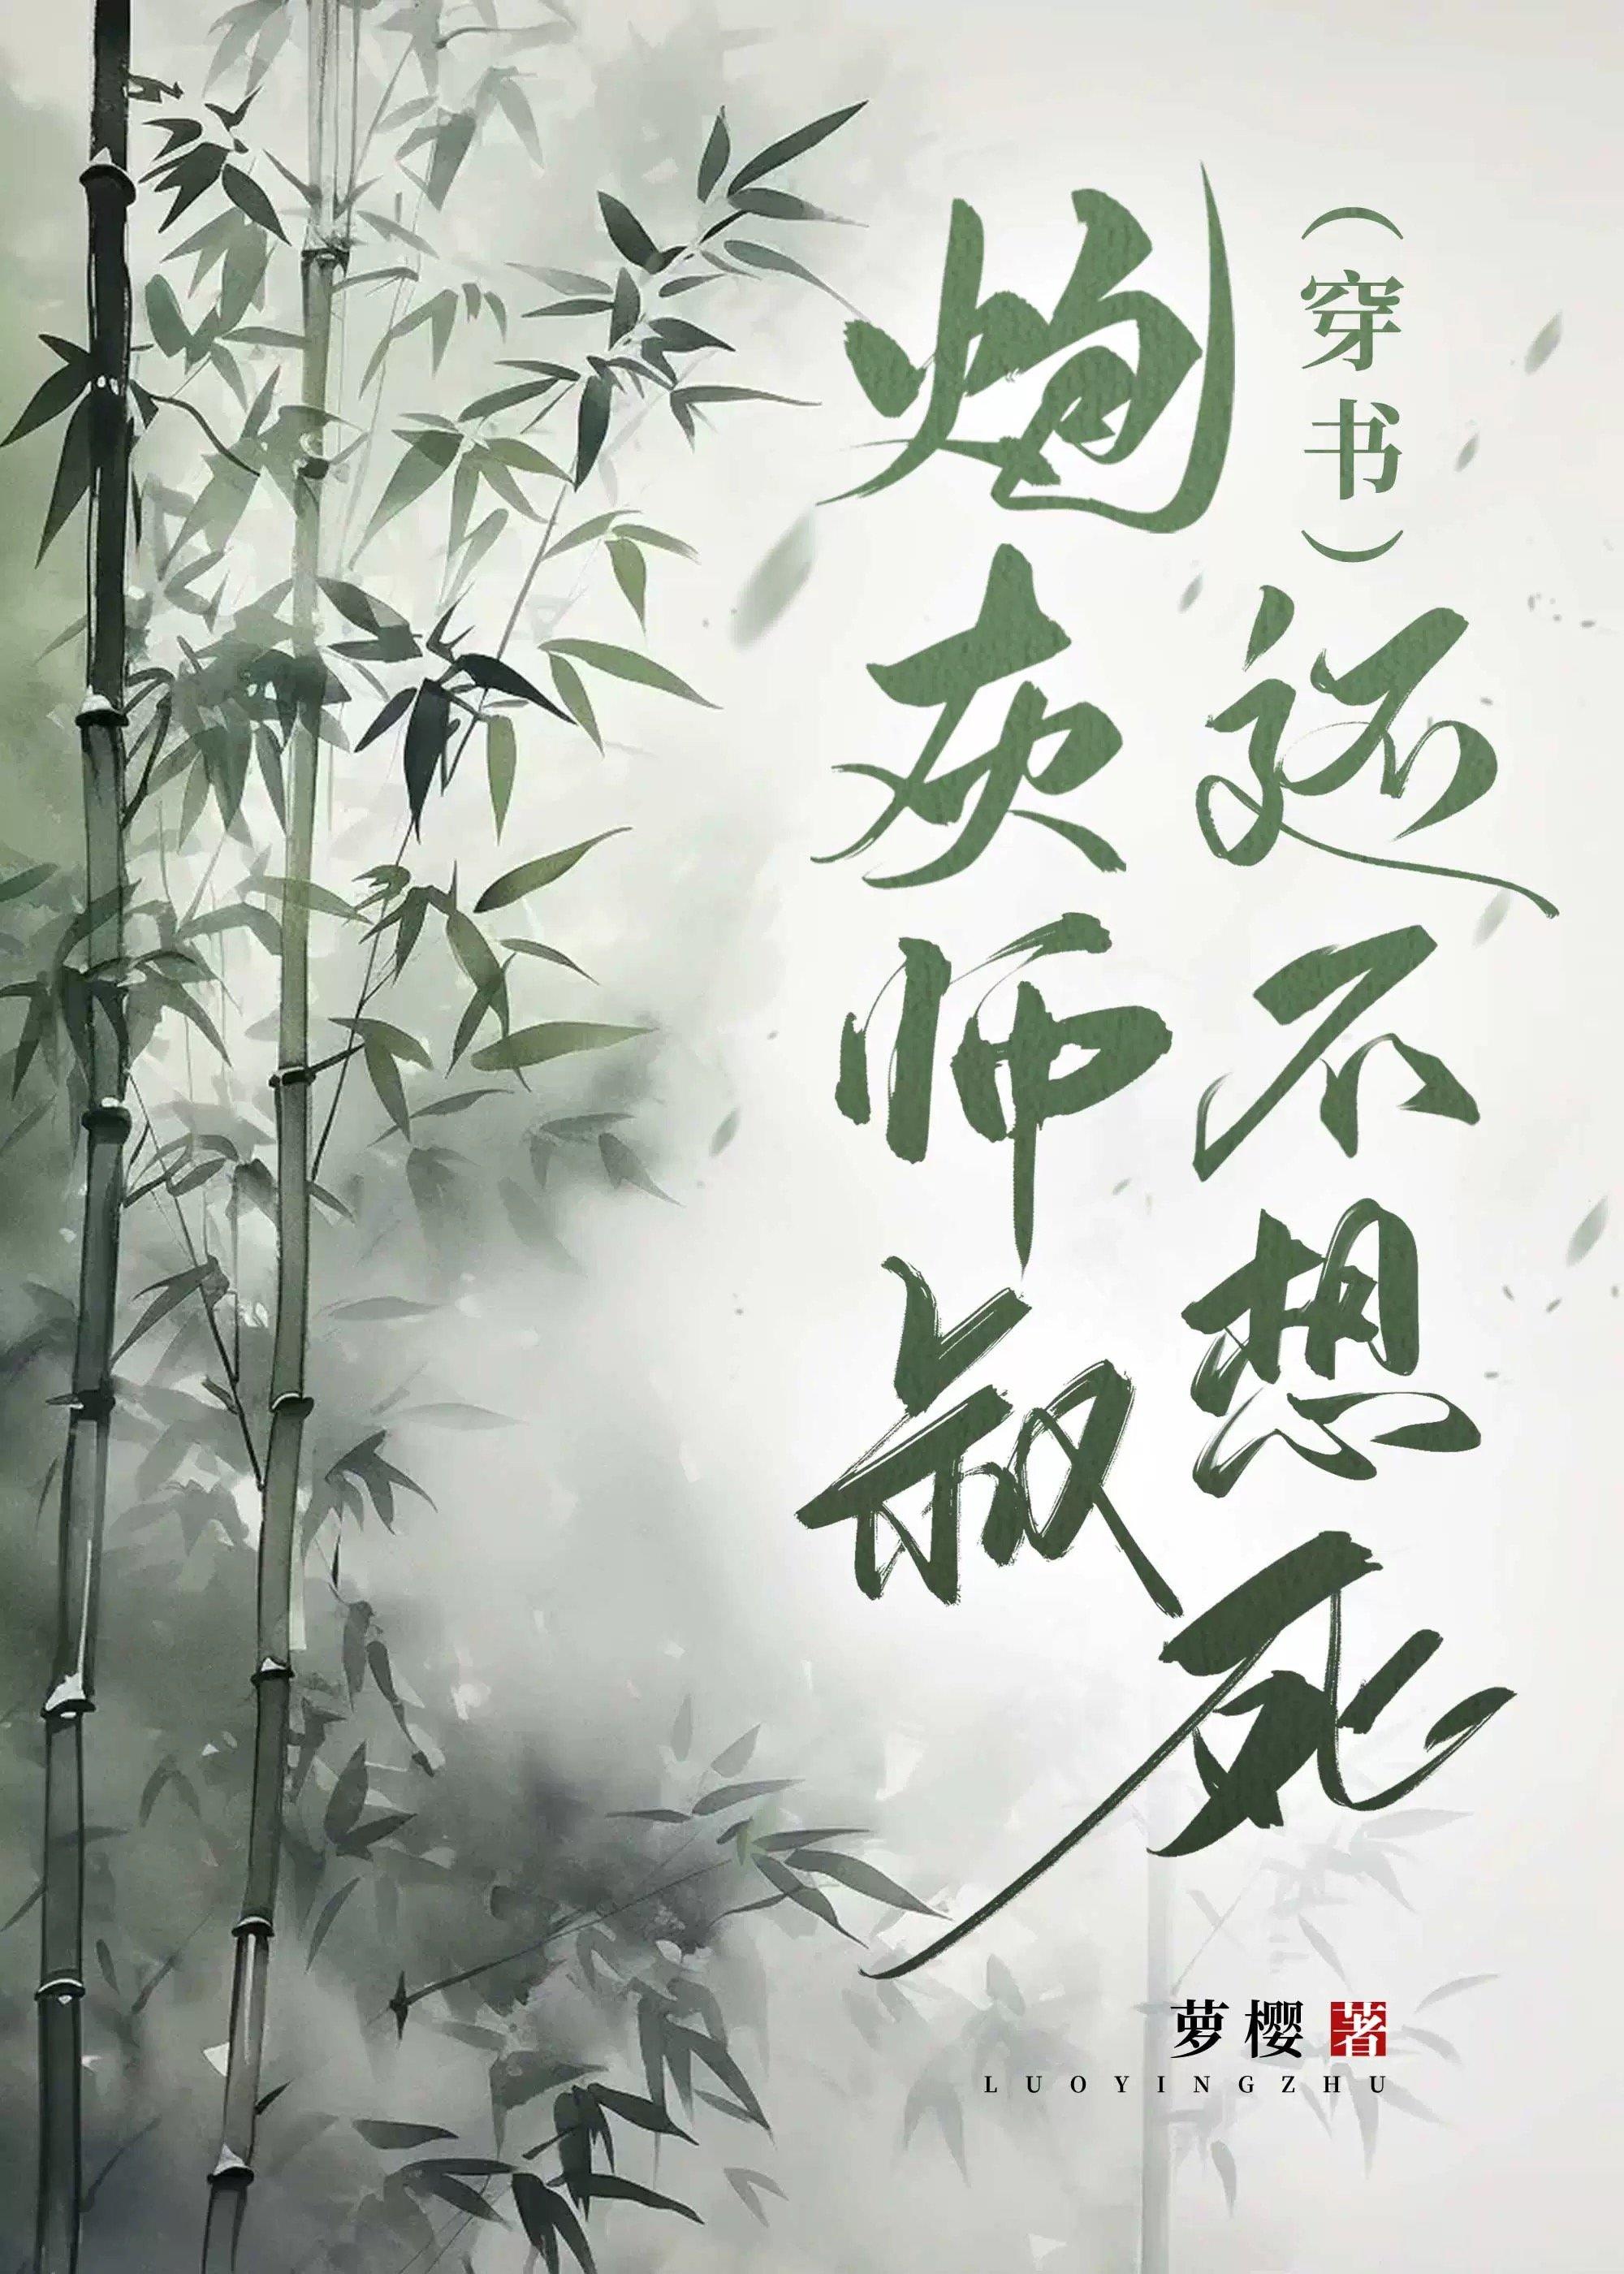 炮灰师叔
(穿书)还不想死
萝樱 著
LUOYINGZHU